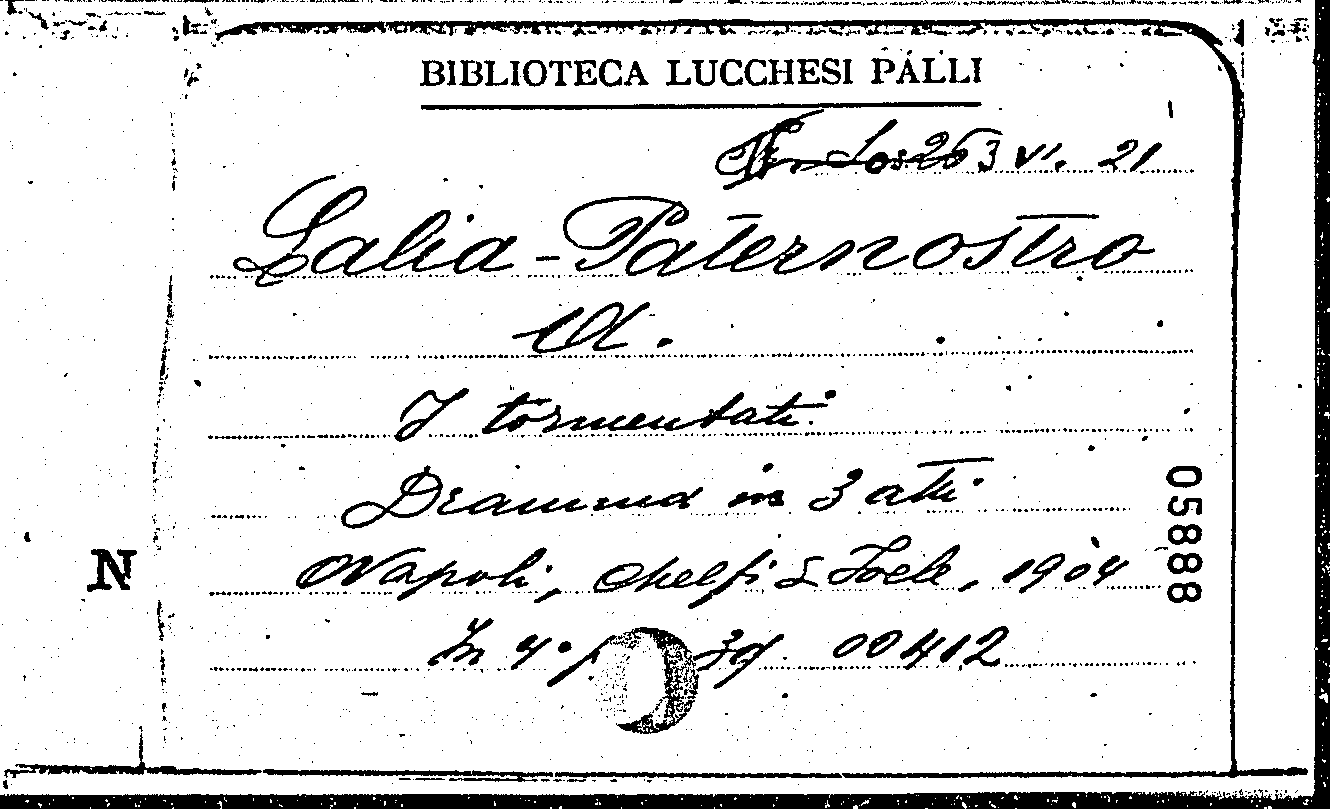 BIBLIOTECA LUCCHESI PALLI
3 VI. 21
Lalia-Paternostro
A.
I tormentati.
Dramma in 3 atti
05888
N
Napoli, Melfi & Joele, 1904
In 4° p. 39 00412